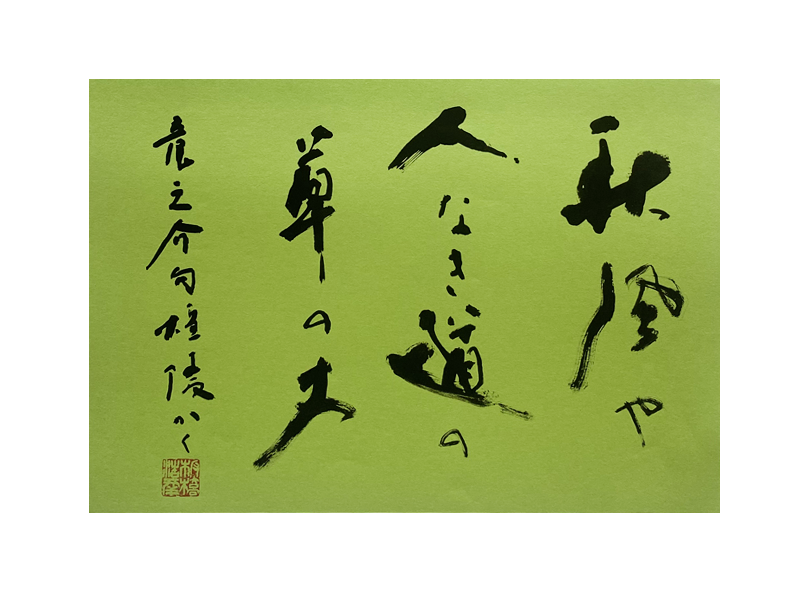 秋風や
人なき道の
草の丈
龍之介句雄陵かく